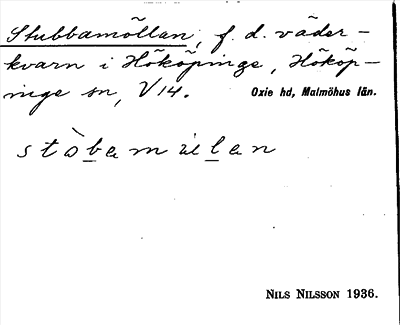 Stubbamöllan, f. d. väder-
kvarn i Hököpinge, Hököp-
inge sn, V 14. Oxie hd, Malmöhus län.
stòbamɯlan
NILS NILSSON 1936.